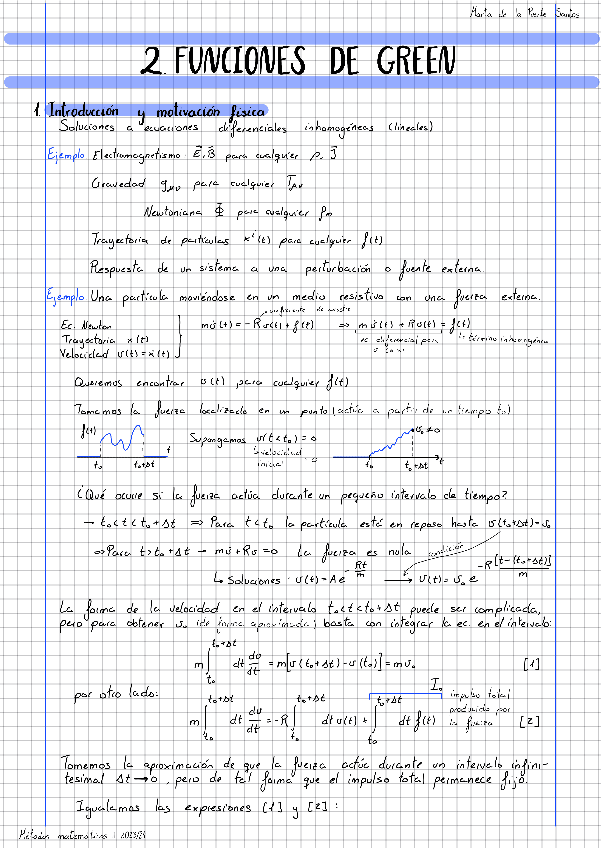 Marta de la Puente Santos
2. FUNCIONES DE GREEN
1. Introducción y motivación física
Soluciones a ecuaciones diferenciales inhomogéneas (lineales)
Ejemplo Electromagnetismo E⃗, B⃗ para cualquier ρ, J⃗
Gravedad g_μν para cualquier T_μν
Newtoniana Φ para cualquier ρ_m
Trayectoria de partículas xⁱ(t) para cualquier f(t)
Respuesta de un sistema a una perturbación o fuente externa.
Ejemplo Una partícula moviéndose en un medio resistivo con una fuerza externa.
coeficiente de
Ec. Newton
Trayectoria x(t)
Velocidad v(t) = ẋ(t)
mv̇(t) = -Rv(t) + f(t) ⇒ mv̇(t) + Rv(t) = f(t)
ec diferencial para
término inhomogéneo
Queremos encontrar v(t) para cualquier f(t)
Tomamos la fuerza localizada en un punto (actúa a partir de un tiempo t₀)
f(t) t t₀ t₀+Δt
Supongamos v(t<t₀) = 0
velocidad inicial = 0
v₀ ≠ 0 t₀ t₀+Δt t
¿Qué ocurre si la fuerza actúa durante un pequeño intervalo de tiempo?
→ t₀<t<t₀+Δt ⇒ Para t<t₀ la partícula está en reposo hasta v(t₀+Δt) = v₀
⇒ Para t>t₀+Δt → mv̇+Rv=0 La fuerza es nula condición
↳ Soluciones: v(t) = A e^(-Rt/m) → v(t) = v₀ e^(-R[t-(t₀+Δt)]/m)
La forma de la velocidad en el intervalo t₀<t<t₀+Δt puede ser complicada,
pero para obtener v₀ (de forma aproximada) basta con integrar la ec. en el intervalo:
m ∫_{t₀}^{t₀+Δt} dt dv/dt = m[v(t₀+Δt) - v(t₀)] = mv₀ [1]
por otro lado:
m ∫_{t₀}^{t₀+Δt} dt dv/dt = -R ∫_{t₀}^{t₀+Δt} dt v(t) + ∫_{t₀}^{t₀+Δt} dt f(t) [2]
I₀ impulso total
producido por
la fuerza
Tomemos la aproximación de que la fuerza actúa durante un intervalo infini-
tesimal Δt→0, pero de tal forma que el impulso total permanece fijo.
Igualamos las expresiones [1] y [2]:
Métodos matemáticos I 2023/24